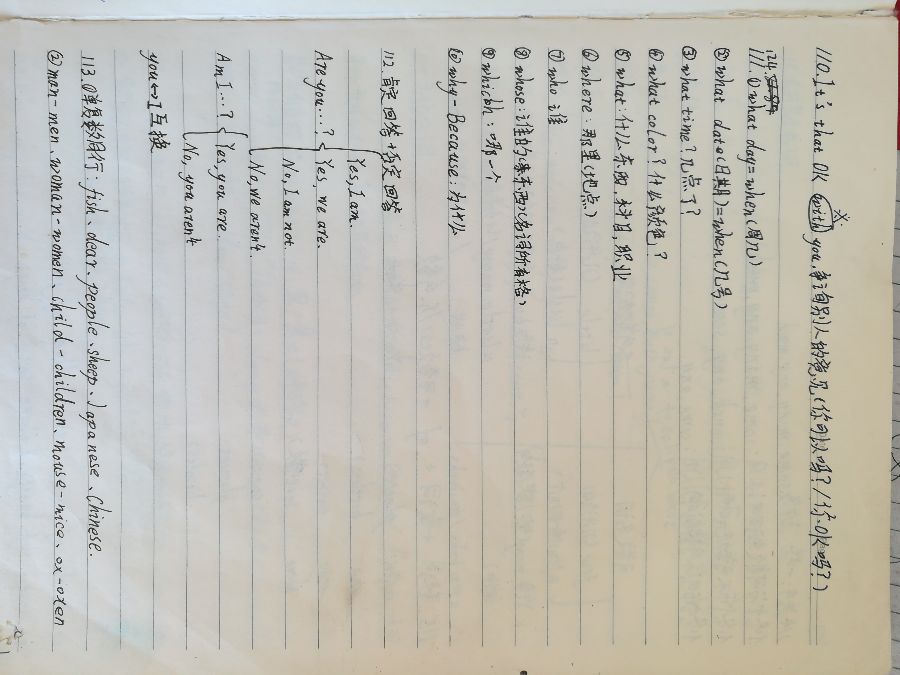 110. It's that OK with you. 询别人的意见(你可以吗?/你OK吗?)
124.
111. ① what day=when(周几)
② what date(日期)=when(几号)
③ what time?几点了?
④ what color?什么颜色?
⑤ what:什么东西,科目,职业
⑥ where:那里(地点)
⑦ who 谁
⑧ whose:谁的(东西)(名词所有格)
⑨ which:哪一个
⑩ why-Because:为什么
112 肯定回答+否定回答
Yes, I am.
Are you...? Yes, we are.
No, I am not.
No, we aren't.
Am I...? Yes, you are.
No, you aren't
you↔I 互换
113. ①单复数同行:fish、dear、people、sheep、Japanese、Chinese.
② man-men、woman-women、child-children、mouse-mice、ox-oxen